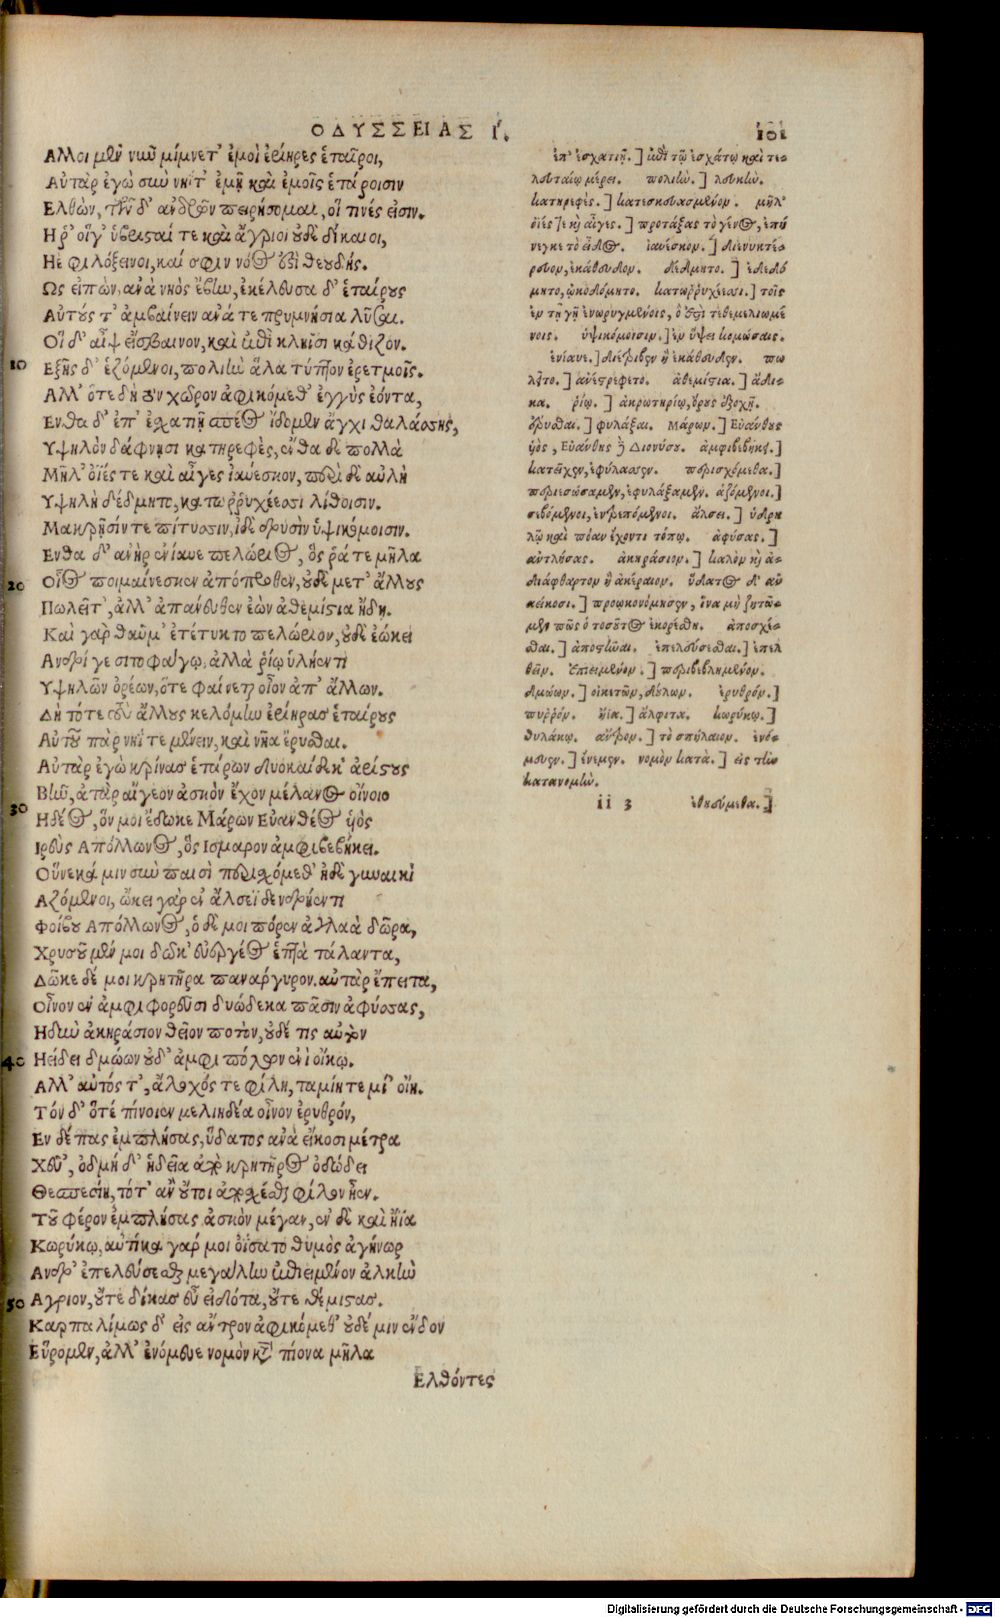 ΟΔΥΣΣΕΙΑΣ Ι.
101
Αλλοι μὲν νιῦ μίμνετ' ἐμοὶ ἐρίηρες ἑταῖροι,
Αὐτὰρ ἐγὼ σιὼ νηΐ τ' ἐμῇ καὶ ἐμοῖς ἑτάροισιν
Ελθὼν, τῶν δ' ἀνδρῶν πειρήσομαι, οἵ τινές εἰσιν.
Η ῥ' οἵγ' ὑβρισταί τε καὶ ἄγριοι οὐδὲ δίκαιοι,
Ηὲ φιλόξεινοι, καί σφιν νόος ἐστὶ θεουδής.
Ως εἰπὼν, ἀνὰ νηὸς ἔβην, ἐκέλευσα δ' ἑταίρους
Αὐτούς τ' ἀμβαίνειν ἀνά τε πρυμνήσια λῦσαι.
Οἵ δ' αἶψ εἴσβαινον, καὶ ἐπὶ κληῖσι κάθιζον.
10 Εξῆς δ' ἑζόμενοι, πολιὼ ἅλα τύπτον ἐρετμοῖς.
Αλλ' ὅτε δὴ τὸν χῶρον ἀφικόμεθ' ἐγγὺς ἐόντα,
Ενθα δ' ἐπ' ἐσχατιῇ σπέος ἴδομεν ἄγχι θαλάσσης,
Υψηλὸν δάφνῃσι κατηρεφές, ἔνθα δὲ πολλὰ
Μῆλ' ὄϊές τε καὶ αἶγες ἰαύεσκον, περὶ δὲ αὐλὴ
Υψηλὴ δέδμητο, κατωρρυχέεσσι λίθοισιν.
Μακρῇσίν τε πίτυσσιν, ἰδὲ δρυσὶν ὑψικόμοισιν.
Ενθα δ' ἀνὴρ ἐνίαυε πελώριος, ὅς ῥά τε μῆλα
20 Οἶος ποιμαίνεσκεν ἀπόπροθεν, οὐδὲ μετ' ἄλλους
Πωλεῖτ', ἀλλ' ἀπάνευθεν ἐὼν ἀθεμίστια ἤδη.
Καὶ γὰρ θαῦμ' ἐτέτυκτο πελώριον, οὐδὲ ἐῴκει
Ανδρί γε σιτοφάγῳ, ἀλλὰ ῥίῳ ὑλήεντι
Υψηλῶν ὀρέων, ὅτε φαίνεται οἶον ἀπ' ἄλλων.
Δὴ τότε τοὺς ἄλλους κελόμην ἐρίηρας ἑταίρους
Αὐτοῦ πὰρ νηΐ τε μένειν, καὶ νῆα ἔρυσθαι.
Αὐτὰρ ἐγὼ κρίνας ἑτάρων δυοκαίδεκ' ἀρίστους
30 Βῆν, ἀτὰρ αἴγεον ἀσκὸν ἔχον μέλανος οἴνοιο
Ηδέος, ὅν μοι ἔδωκε Μάρων Εὐανθέος ὑὸς
Ιρεὺς Απόλλωνος, ὃς Ισμαρον ἀμφιβεβήκει.
Οὕνεκά μιν σιὼ παισὶ περισχόμεθ' ἠδὲ γυναικὶ
Αζόμενοι, ᾤκει γὰρ ἐν ἄλσεϊ δενδρήεντι
Φοίβου Απόλλωνος, ὁ δέ μοι πόρεν ἀγλαὰ δῶρα,
Χρυσοῦ μέν μοι δῶκ' εὐεργέος ἑπτὰ τάλαντα,
Δῶκε δέ μοι κρητῆρα πανάργυρον. αὐτὰρ ἔπειτα,
Οἶνον ἐν ἀμφιφορεῦσι δυώδεκα πᾶσιν ἀφύσσας,
Ηδιὼ ἀκηράσιον θεῖον ποτὸν, οὐδέ τις αὐτὸν
40 Ηείδει δμώων οὐδ' ἀμφιπόλων ἐνὶ οἴκῳ.
Αλλ' αὐτός τ', ἄλοχός τε φίλη, ταμίη τε μί' οἴη.
Τόν δ' ὅτέ πίνοιεν μελιηδέα οἶνον ἐρυθρόν,
Εν δέπας ἐμπλήσας, ὕδατος ἀνὰ εἴκοσι μέτρα
Χεῦ', ὀδμή δ' ἡδεῖα ἀπὸ κρητῆρος ὀδώδει
Θεσπεσίη, τότ' ἂν οὔτοι ἀποσχέσθαι φίλον ἦεν.
Τοῦ φέρον ἐμπλήσας ἀσκὸν μέγαν, ἐν δὲ καὶ ἤϊα
Κωρύκῳ, αὐτίκα γάρ μοι ὀΐσατο θυμὸς ἀγήνωρ
Ανδρ' ἐπελεύσεσθαι μεγάλιω ἐπιειμένον ἀλκιώ
50 Αγριον, οὔτε δίκας εὖ εἰδότα, οὔτε θέμιστας.
Καρπαλίμως δ' εἰς ἄντρον ἀφικόμεθ' οὐδέ μιν ἔνδον
Εὕρομεν, ἀλλ' ἐνόμευε νομὸν κάτα πίονα μῆλα
Ελθόντες
ἐπ' ἐσχατιῇ.] ἐπὶ τῷ ἐσχάτῳ καὶ τε-
λευταίῳ μέρει. πολιὼ.] λευκὼ.
κατηρεφὲς.] κατεσκευασμένον. μῆλ'
ὄϊές τε καὶ αἶγες.] προτάξας τὸ γένος, ἐπή
νεγκε τὸ εἶδος. ἰαύεσκον.] διενυκτέ-
ρευον, ἐκάθευδον. δέδμητο.] ἐδεδό
μητο, ᾠκοδόμητο. κατωρρυχέεσσι.] τοῖς
ἐν τῇ γῇ ἐνωρυγμένοις, ὅ ἐστι τεθεμελιωμέ
νοις. ὑψικόμοισιν.] ἐν ὕψει κομώσαις.
ἐνίαυε.] διέτριβεν ἢ ἐκάθευδεν. πω
λεῖτο.] ἀνεστρέφετο. ἀθεμίστια.] ἄδι-
κα. ῥίῳ.] ἀκρωτηρίῳ, ὄρους ἐξοχῇ.
ἔρυσθαι.] φυλάξαι. Μάρων.] Εὐάνθους
ὑὸς, Εὐάνθης δὲ Διονύσου. ἀμφιβεβήκει.]
κατεῖχεν, ἐφύλασσεν. περισχόμεθα.]
περιεσώσαμεν, ἐφυλάξαμεν. ἁζόμενοι.]
σεβόμενοι, ἐντρεπόμενοι. ἄλσει.] ὑδρη
λῷ καὶ πόαν ἔχοντι τόπῳ. ἀφύσας.]
ἀντλήσας. ἀκηράσιον.] καλὸν καὶ ἀ-
διάφθαρτον ἢ ἀκέραιον. ὕδατος δ' ἀν
αείκοσι.] προῳκονόμησεν, ἵνα μὴ ζητῶ-
μεν πῶς ὁ τοσοῦτος ἐκορέσθη. ἀποσχέ-
σθαι.] ἀποστῶαι. ἐπελεύσεσθαι.] ἐπελ
θεῖν. ἐπιειμένον.] περιβεβλημένον.
δμώων.] οἰκετῶν, δούλων. ἐρυθρόν.]
πυρρόν. ἤϊα.] ἄλφιτα. κωρύκῳ.]
θυλάκῳ. ἄντρον.] τὸ σπήλαιον. ἐνό-
μευεν.] ἔνεμεν. νομὸν κατὰ.] εἰς τὼ
κατανομὼ.
ii 3 ἐθησύμεθα.]
Digitalisierung gefördert durch die Deutsche Forschungsgemeinschaft - DFG